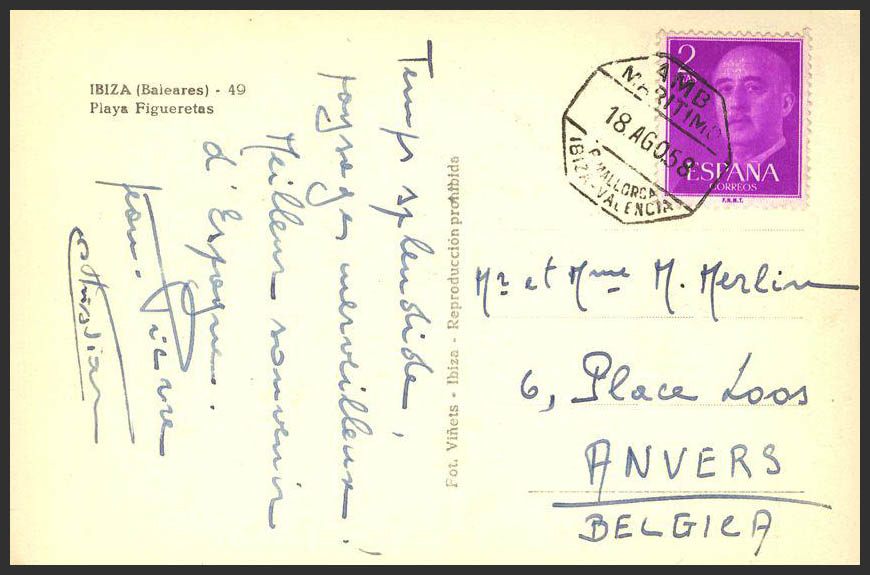 IBIZA (Baleares) - 49
Playa Figueretas
Temps splendide,
paysages merveilleux!
Meilleur souvenir
d'Espagne.
Jean-Pierre
Fot. Viñets - Ibiza - Reproducción prohibida
2
PTAS
ESPAÑA
CORREOS
F.N.M.T.
AMB
MARITIMO
18.AGO.58
P. MALLORCA
IBIZA-VALENCIA
Mr et Mme M. Merlin
6, Place Loos
ANVERS
BELGICA